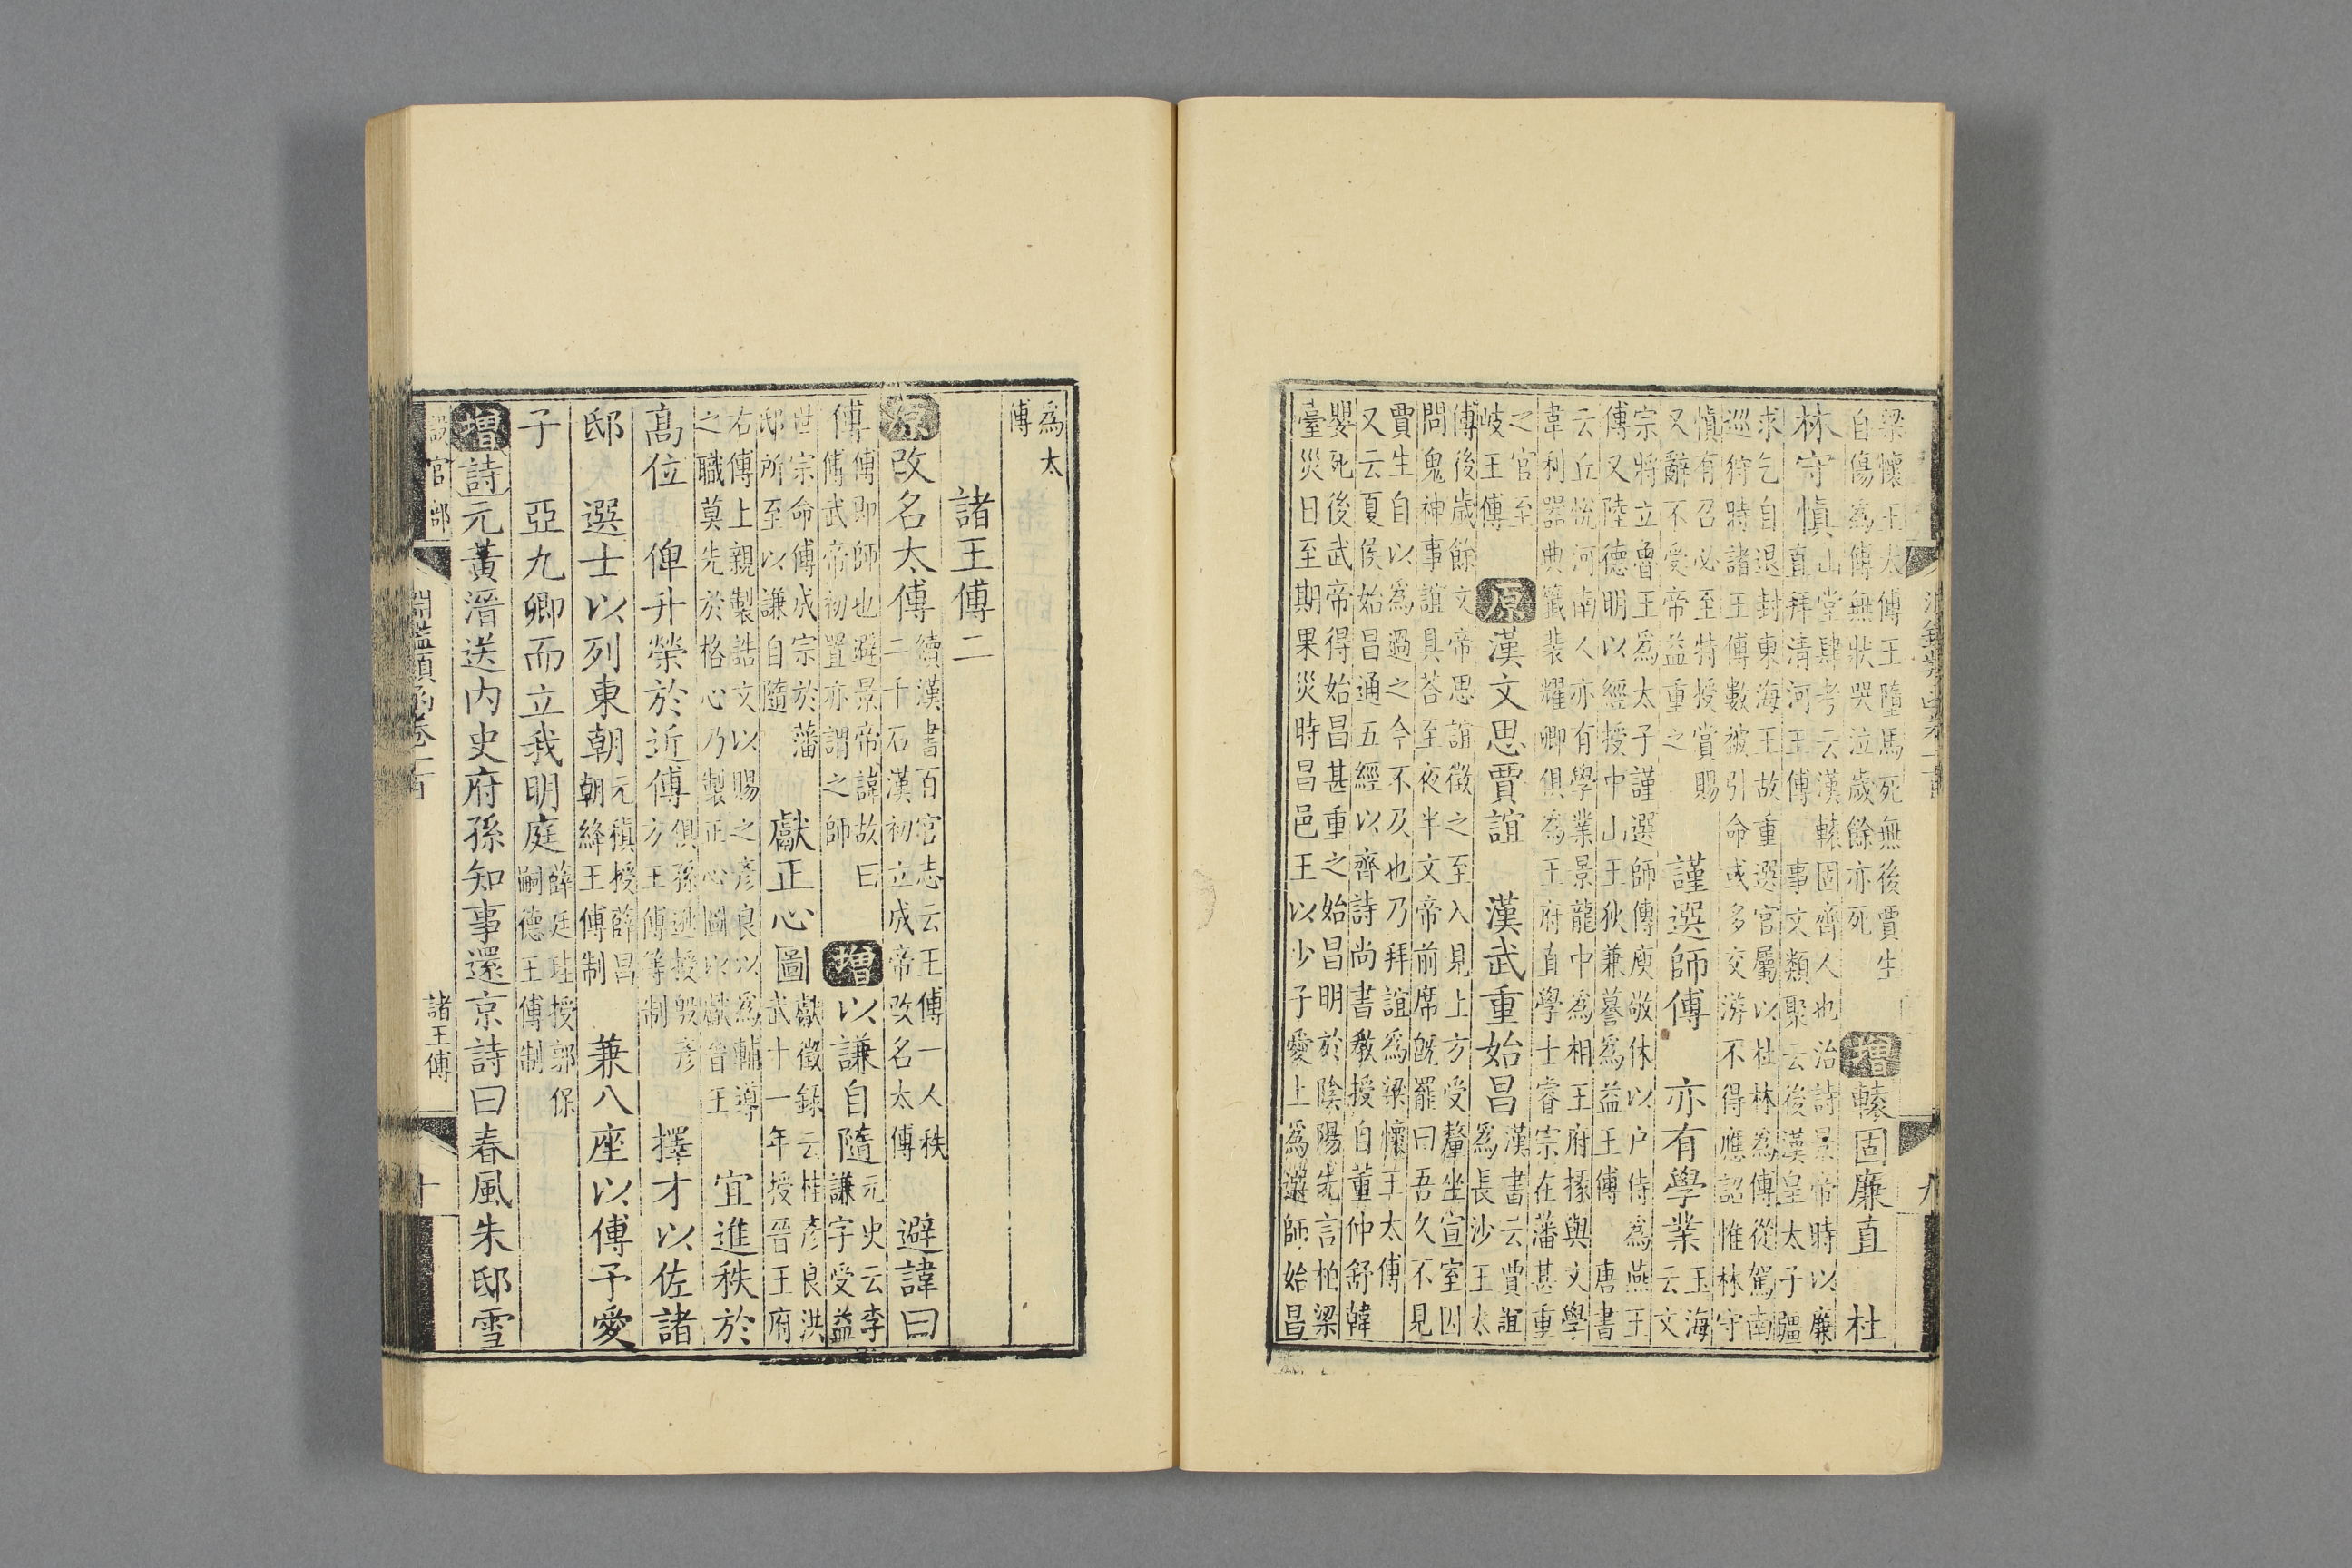 梁懷王太傅王墮馬死無後賈生
自傷為傅無狀哭泣歲餘亦死
增 轅固廉直 杜
林守慎
山堂肆考云漢轅固齊人也治詩景帝時以廉
直拜清河王傅 事文類聚云後漢皇太子疆
求乞自退封東海王故重選官屬以杜林為傅從駕南
巡狩時諸王傅數被引命或多交游不得應詔惟林守
慎有召必至特授賞賜
又辭不受帝益重之
謹選師傅 亦有學業
玉海
云文
宗將立魯王為太子謹選師傅庾敬休以户侍為燕王
傅又陸德明以經授中山王狄兼謩為益王傅 唐書
云丘悅河南人亦有學業景龍中為相王府掾與文學
韋利器典籤裴耀卿俱為王府直學士睿宗在藩甚重
之官至
岐王傅
原 漢文思賈誼 漢武重始昌
漢書云賈誼
為長沙王太
傅後歲餘文帝思誼徵之至入見上方受釐坐宣室因
問鬼神事誼具荅至夜半文帝前席旣罷曰吾久不見
賈生自以為過之今不及也乃拜誼為梁懷王太傅
又云夏侯始昌通五經以齊詩尚書教授自董仲舒韓
嬰死後武帝得始昌甚重之始昌明於陰陽先言柏梁
臺災日至期果災時昌邑王以少子愛上為選師始昌
九
為太
傅
諸王傅二
原 改名太傅
續漢書百官志云王傅一人秩
二千石漢初立成帝改名太傅
避諱曰
傅
傅即師也避景帝諱故曰
傅武帝初置亦謂之師
增 以謙自隨
元史云李
謙字受益
世宗命傅成宗於藩
邸所至以謙自隨
獻正心圖
獻徵錄云桂彥良洪
武十一年授晉王府
右傅上親製誥文以賜之彥良以為輔導
之職莫先於格心乃製正心圖以獻晉王
宜進秩於
高位 俾升榮於近傅
俱孫逖授殷彥
方王傅等制
擇才以佐諸
邸 選士以列東朝
元稹授薛昌
朝絳王傅制
兼八座以傅予愛
子 亞九卿而立我明庭
薛廷珪授郭保
嗣德王傅制
增 詩元黃溍送内史府孫知事還京詩曰春風朱邸雪
設官部
淵鑑類函卷一百
諸王傅
十